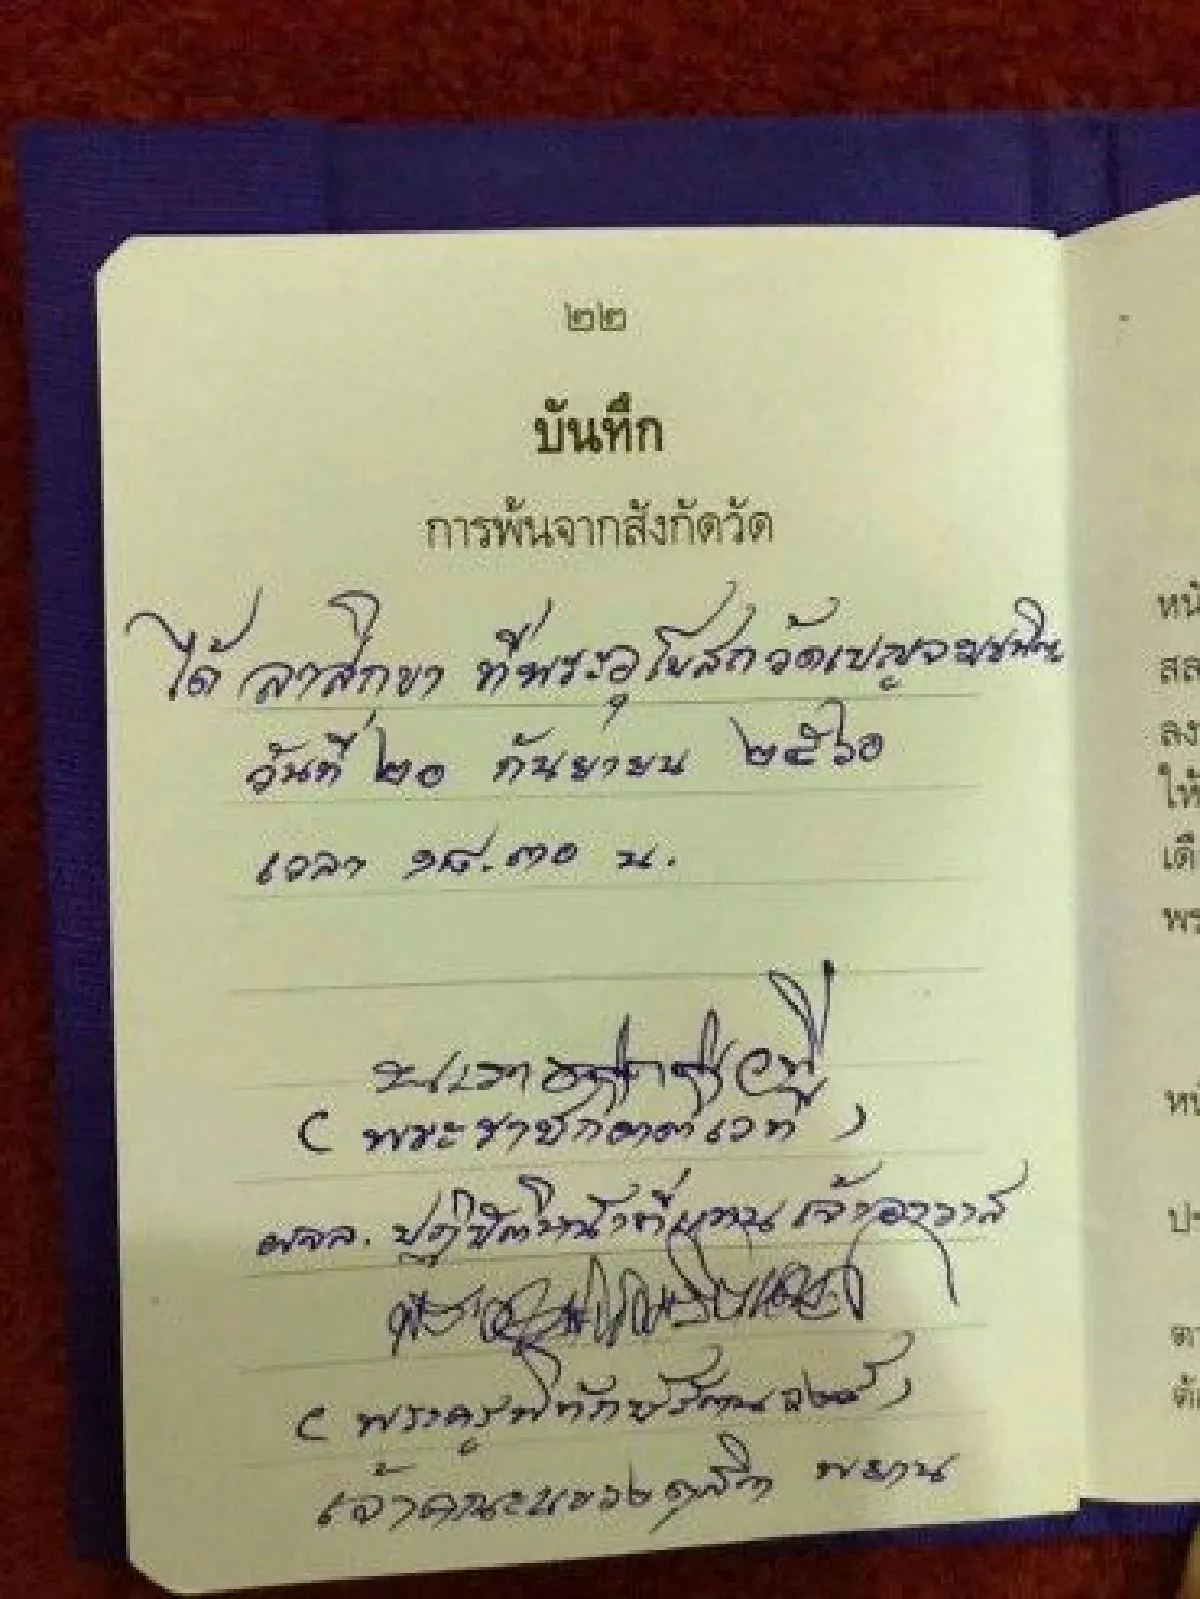 ๒๒
บันทึก
การพ้นจากสังกัดวัด
ได้ลาสิกขา ที่พระอุโบสถวัดเบญจมบพิตร
วันที่ ๒๐ กันยายน ๒๕๖๐
เวลา ๑๘.๓๐ น.
( พระราช เวที )
ผจล. ปฏิบัติหน้าที่แทนเจ้าอาวาส
( พระครูพิทักษ์
เจ้าคณะแขวงดุสิต พยาน
หน้
สล
ลง
ให้
เดื
พร
หน้
ปร
ตา
ต้